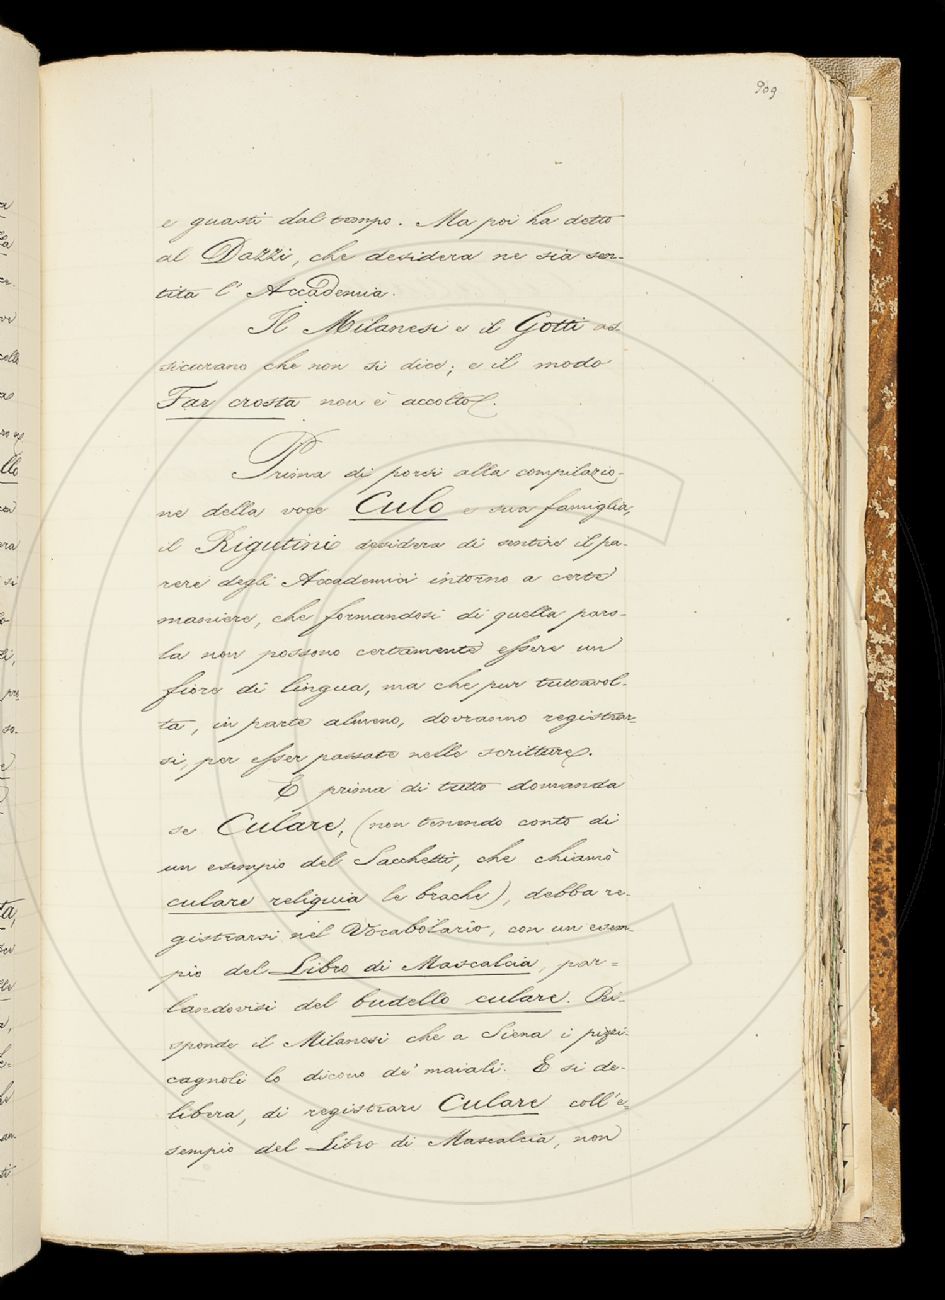 909
e guasti dal tempo. Ma poi ha detto
al Dazzi, che desidera ne sia sen-
tita l'Accademia.
Il Milanesi e il Gotti as-
sicurano che non si dice; e il modo
Far crosta non è accolto.
Prima di porsi alla compilazio-
ne della voce Culo e sua famiglia,
il Rigutini desidera di sentire il pa-
rere degli Accademici intorno a certe
maniere, che formandosi di quella paro-
la non possono certamente essere un
fiore di lingua, ma che pur tuttavol-
ta, in parte almeno, dovranno registrar-
si, per esser passate nelle scritture.
E prima di tutto domanda
se Culare, (non tenendo conto di
un esempio del Sacchetti, che chiamò
culare reliquia le brache), debba re-
gistrarsi nel Vocabolario, con un esem-
pio del Libro di Mascalcia, par=
landovisi del budello culare. Ri-
sponde il Milanesi che a Siena i pizzi-
cagnoli lo dicono de' maiali. E si de-
libera, di registrare Culare coll'e=
sempio del Libro di Mascalcia, non